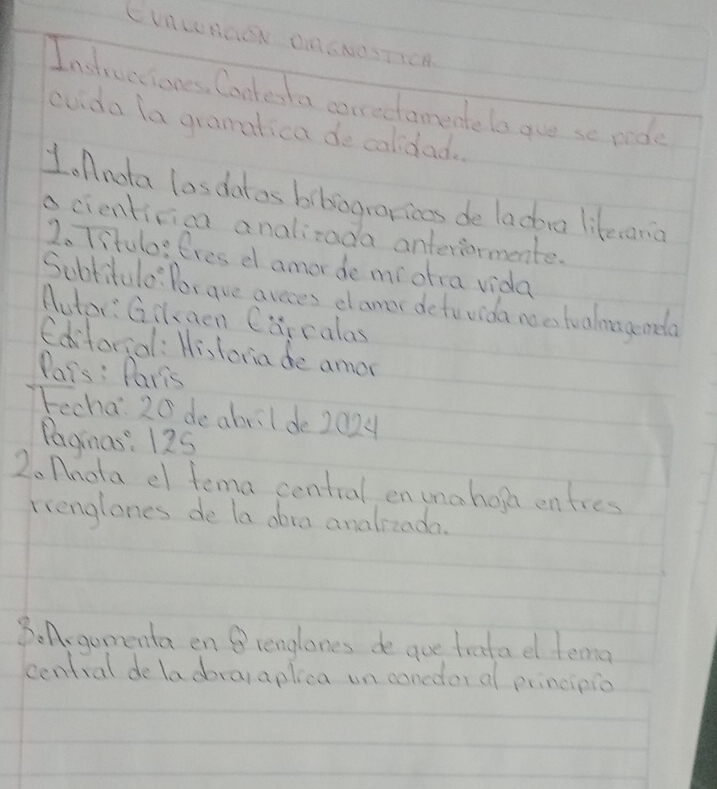 EVALUACIÓN DIAGNOSTICA
Instrucciones. Contesta correctamente lo que se pide
cuida la gramatica de calidad..
1. Anota los datos bibiograficos de la dora literaria
o cientirica analizada anteriormente.
2. Titulo: Eres el amor de mi otra vida
Subtitulo: Porque aveces el amor de tu vida no es tu alma gemela
Autor: Cárcalas
Editorial: Historia de amor
País: Paris
Fecha: 20 de abril de 2024
Paginas: 125
2. Anota el tema central en una hoja en tres
rrenglones de la obra analizada.
3. Argomenta en 8 renglones de que trata el tema
central de la dora, aplica un conector al principio